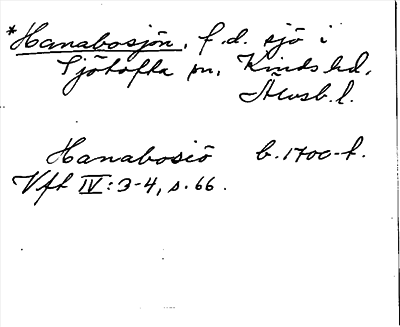 *Hanabosjön, f.d. sjö i
Sjötofta sn, Kinds hd,
Älvsb. l.
Hanabosiö b. 1700-t.
Vft IV: 3-4, s. 66.